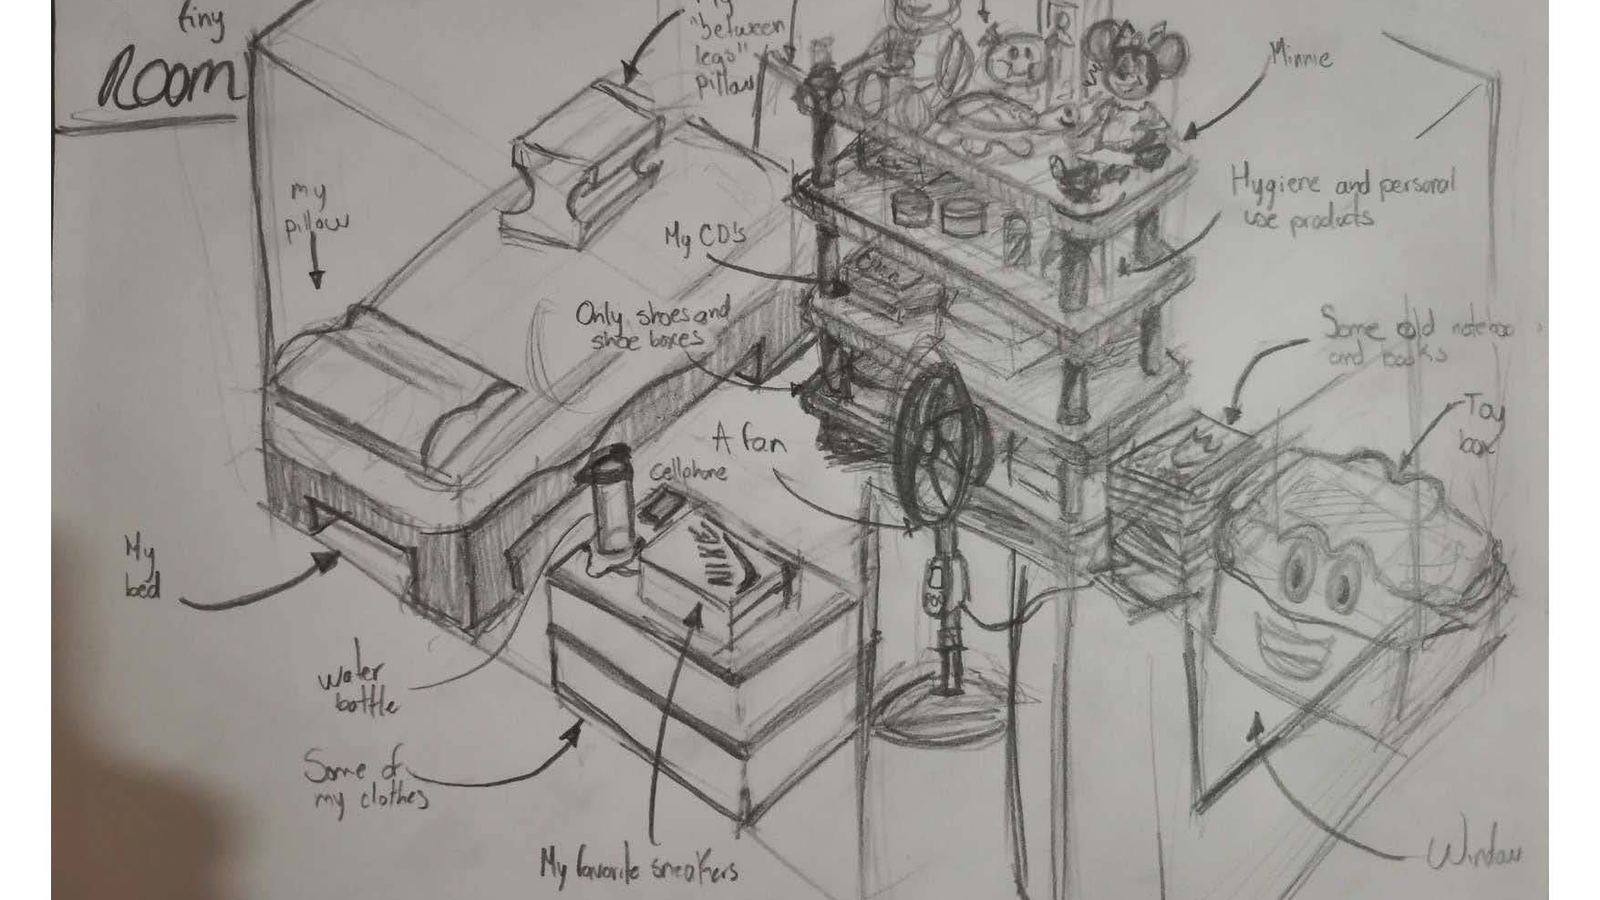 tiny
Room
My
"between
legs"
pillow
Minnie
my
pillow
Hygiene and personal
use products
My CD's
Only shoes and
shoe boxes
Some old
and books
Toy
box
A fan
cellphone
NIKE
My
bed
water
bottle
Some of
my clothes
My favorite sneakers
Window